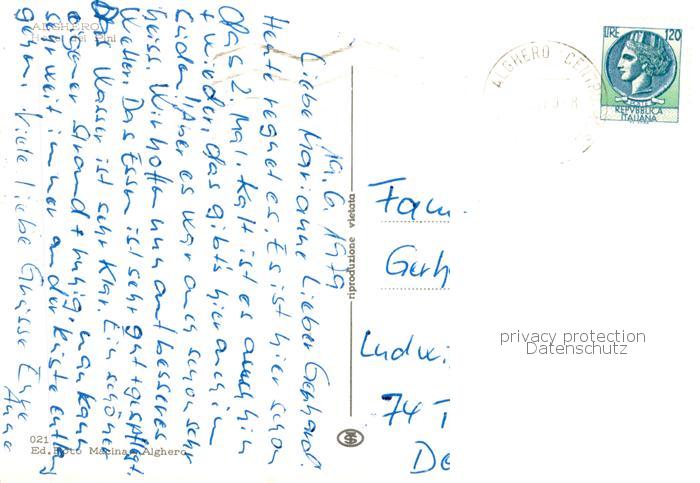 ALGHERO
Hotel dei Pini
19.6.1979
Liebe Marianne Lieber Gerhard.
Heute regnet es. Es ist hier schon
das 2. Mal. Kalt ist es auch hin
+ wieder, das gibt's hier auch im
Süden! Aber es war auch schon sehr
heiss. Wir hoffen nun auf besseres
Wetter. Das Essen ist sehr gut + gepflegt.
Das Wasser ist sehr klar. Ein schöner
eigener Strand + ruhig, man kann
sehr weit immer an der Küste entlang
gehen. Viele liebe Grüsse Eure
Anne
021
Ed. Foto Macina - Alghero
riproduzione vietata
ALGHERO CENTR
LIRE 120
REPVBBLICA
ITALIANA
Fam.
Gerh
Ludwi
74 T
De
privacy protection
Datenschutz